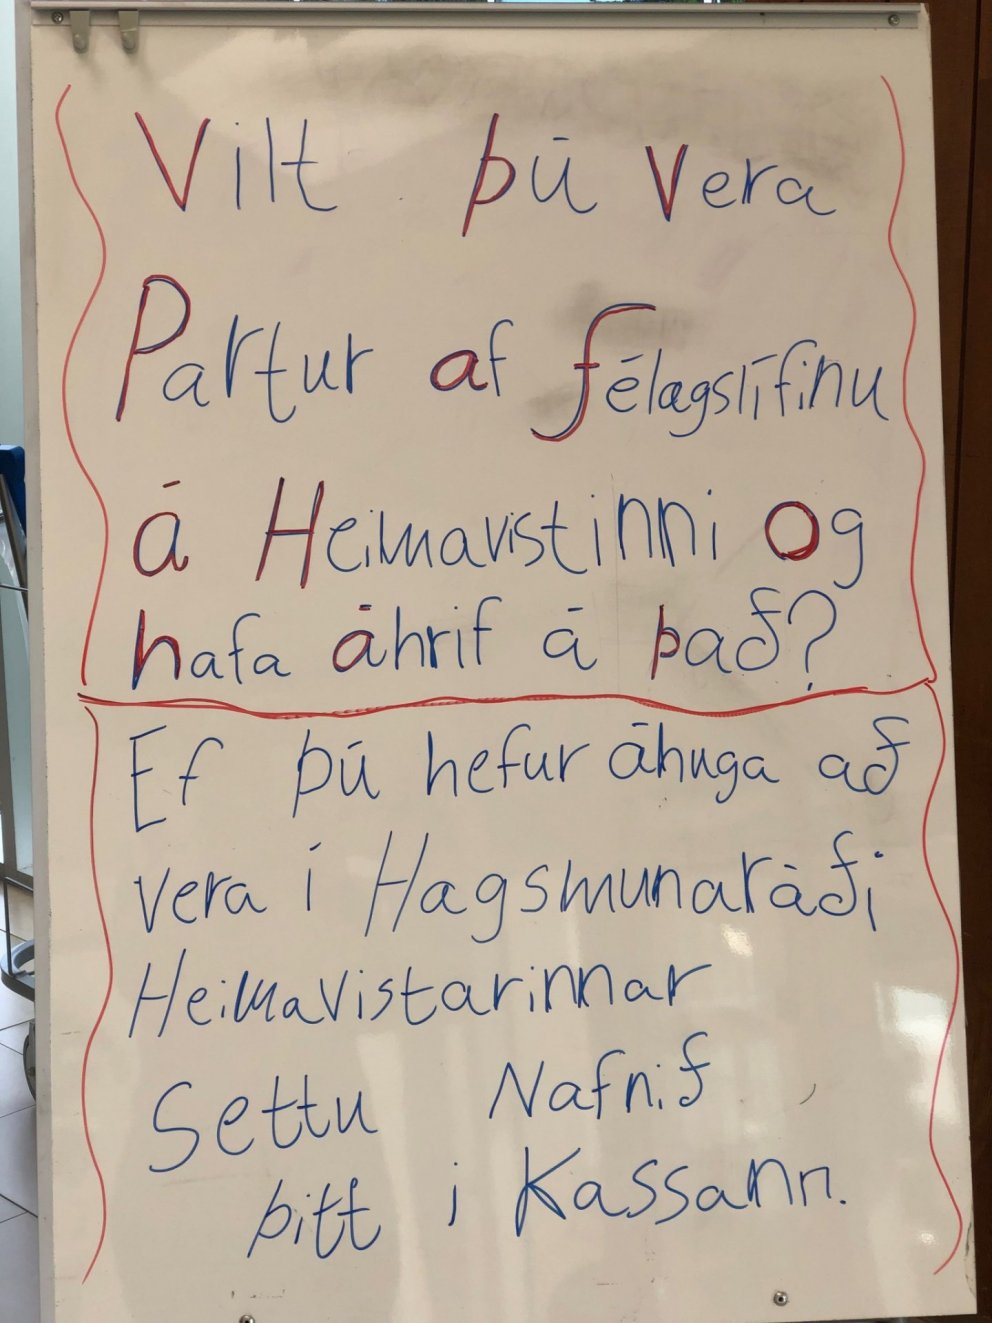 Vilt þú vera
Partur af félagslífinu
á Heimavistinni og
hafa áhrif á það?
Ef þú hefur áhuga að
vera í Hagsmunaráði
Heimavistarinnar
Settu Nafnið
þitt i Kassann.